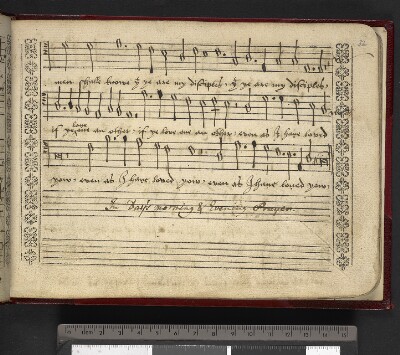 men shall knowe yt ye are my disciples · yt ye are my disciples ·
if ye love one an other · if ye love one an other · even as I have loved
yow · even as I have loved yow · even as I have loved yow ·
In Days morning & Evening Prayer